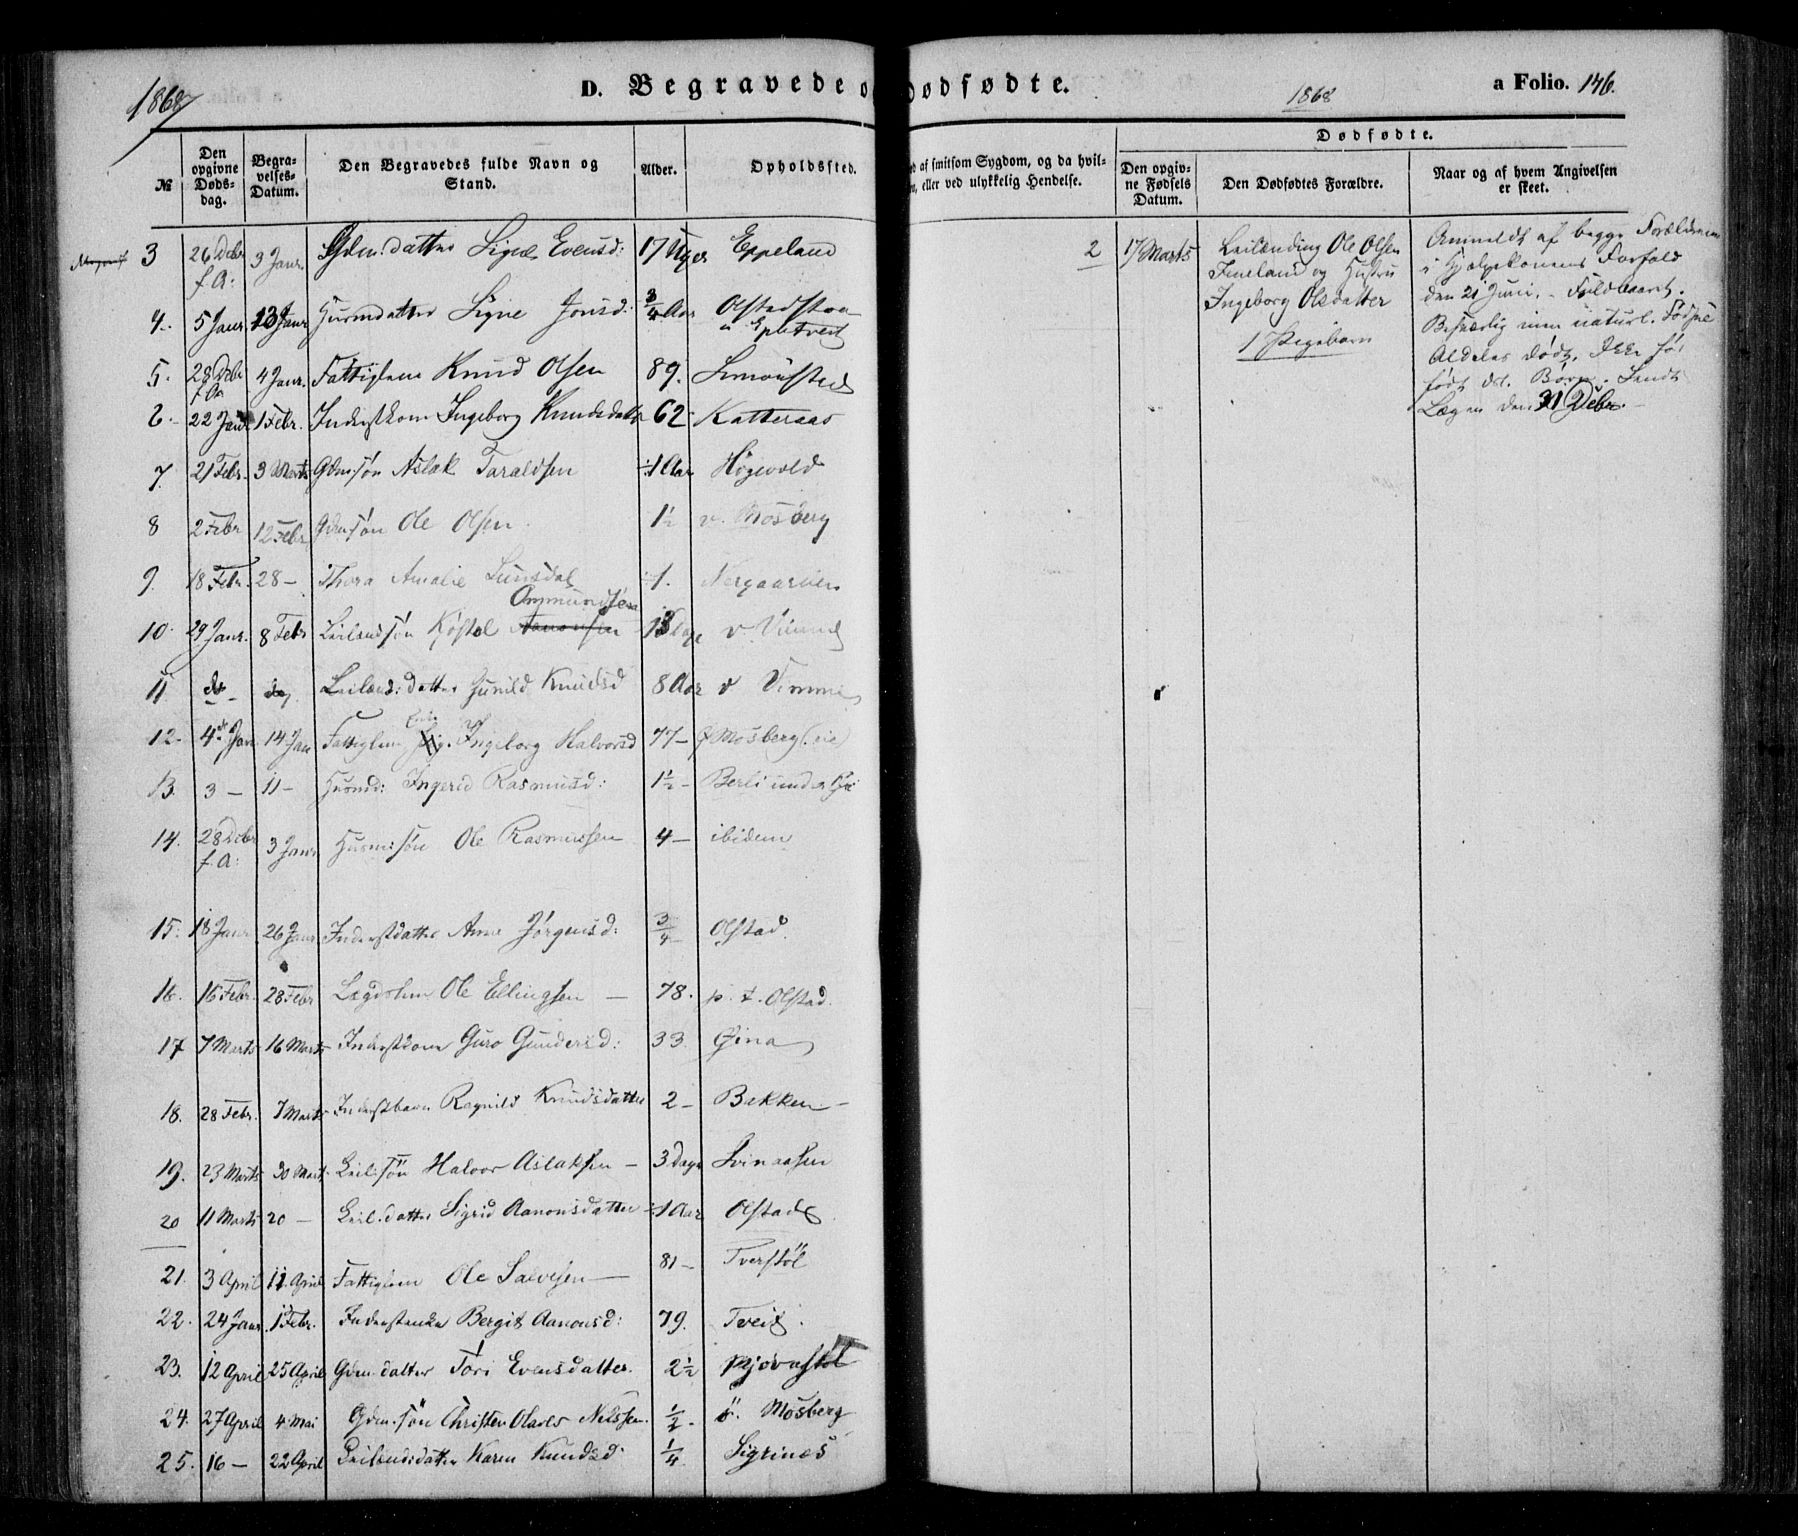 1868
D. Begravede o
ødfødte.
1868
a Folio. 146.
№
Den opgivne Døds-dag.
Begra-velses-Datum.
Den Begravedes fulde Navn og Stand.
Alder.
Opholdssted.
d af smitsom Sygdom, og da hvil-
n, eller ved ulykkelig Hendelse.
Dødfødte.
Den opgiv-ne Fødsels Datum.
Den Dødfødtes Forældre.
Naar og af hvem Angivelsen er skeet.
3 26 Debr f. A: 3 Janr. Gdm: datter Signe Evensd: 17 Uger Eppeland
4. 5 Janr 13 Janr Husmdatter Signe Jonsd: 3/4 Aar Olstad
5. 28 Debr f. A. 4 Janr. Fattiglem Knud Olsen 89. Simonsted
6. 22 Janr 1 Febr. Inderstkone Ingeborg Knudsdatter 62 Katteraas
7. 21 Febr. 3 Marts Gdmsøn Aslak Taraldsen 1 Aar Høgevold
8 2 Febr 12 Febr Gdmsøn Ole Olsen. 1½ v. Mosberg
9. 18 Febr. 28 – Thora Amalie 1. Nergaarden
Ommundsen
10. 29 Janr. 8 Febr Leilendsøn Aanonsen 13 Dage v. Vimme
11 do – do Leilænd: datter Gunild Knudsd 8 Aar v Vimme
12. 4 Jan 14 Jan Fattiglem Enke Ingeborg Halvorsd 77 – Ø Mosberg (eie)
13. 3 – 11 – Husmd: Ingerid Rasmusd: 1½ – Berli under
14. 28 Debr f. A: 3 Janr Husm: søn Ole Rasmussen 4 – ibidem
15. 18 Janr 26 Janr Inderstdatter Anne Jørgensd: 3/4 Olstad.
16. 16 Febr. 28 Febr Lægdslem Ole Ellingsen – 78. p. t. Olstad.
17 7 Marts 16 Marts Inderstkone Guro Gundersd: 33 Øina
18. 28 Febr. 7 Marts Inderstbarn Ragnild Knudsdatter 2 – Bakken –
19. 23 Marts 30 Marts Leil: søn Halvor Aslaksen – 3 Dage Svinaasen
20 11 Marts 20 – Leil. datter Sigrid Aanonsdatter 1 Aar Olstad
21. 3 April 11 April Fattiglem Ole Salvesen – 81 – Tverstøl
22. 24 Janr. 1 Febr. Inderstenke Bergit Aanonsd: 79. Tveit.
23. 12 April 25 April Gdm. datter Tori Evensdatter. 2½ Mjovastøl
24. 27 April 4 Mai Gdm. søn Christen Olaves Nilssen. ½ – ö. Mosberg
25. 16 – 22 April Leilændsdatter Karen Knudsd. ¼ Sigrinæs
2 17 Marts
Leilænding Ole Olsen
Fineland og Hustru
Ingeborg Olsdatter
1 Pigebarn
Anmeldt af begge Forældrene
i Hjælpekonens Forfald
den 21 Juni. – Fuldbaaret.
Besværlig men naturl. Fødsel
Aldeles dødt. Ikke før
født dd. Børn. Sendt
Lægen den 31 Debr. –